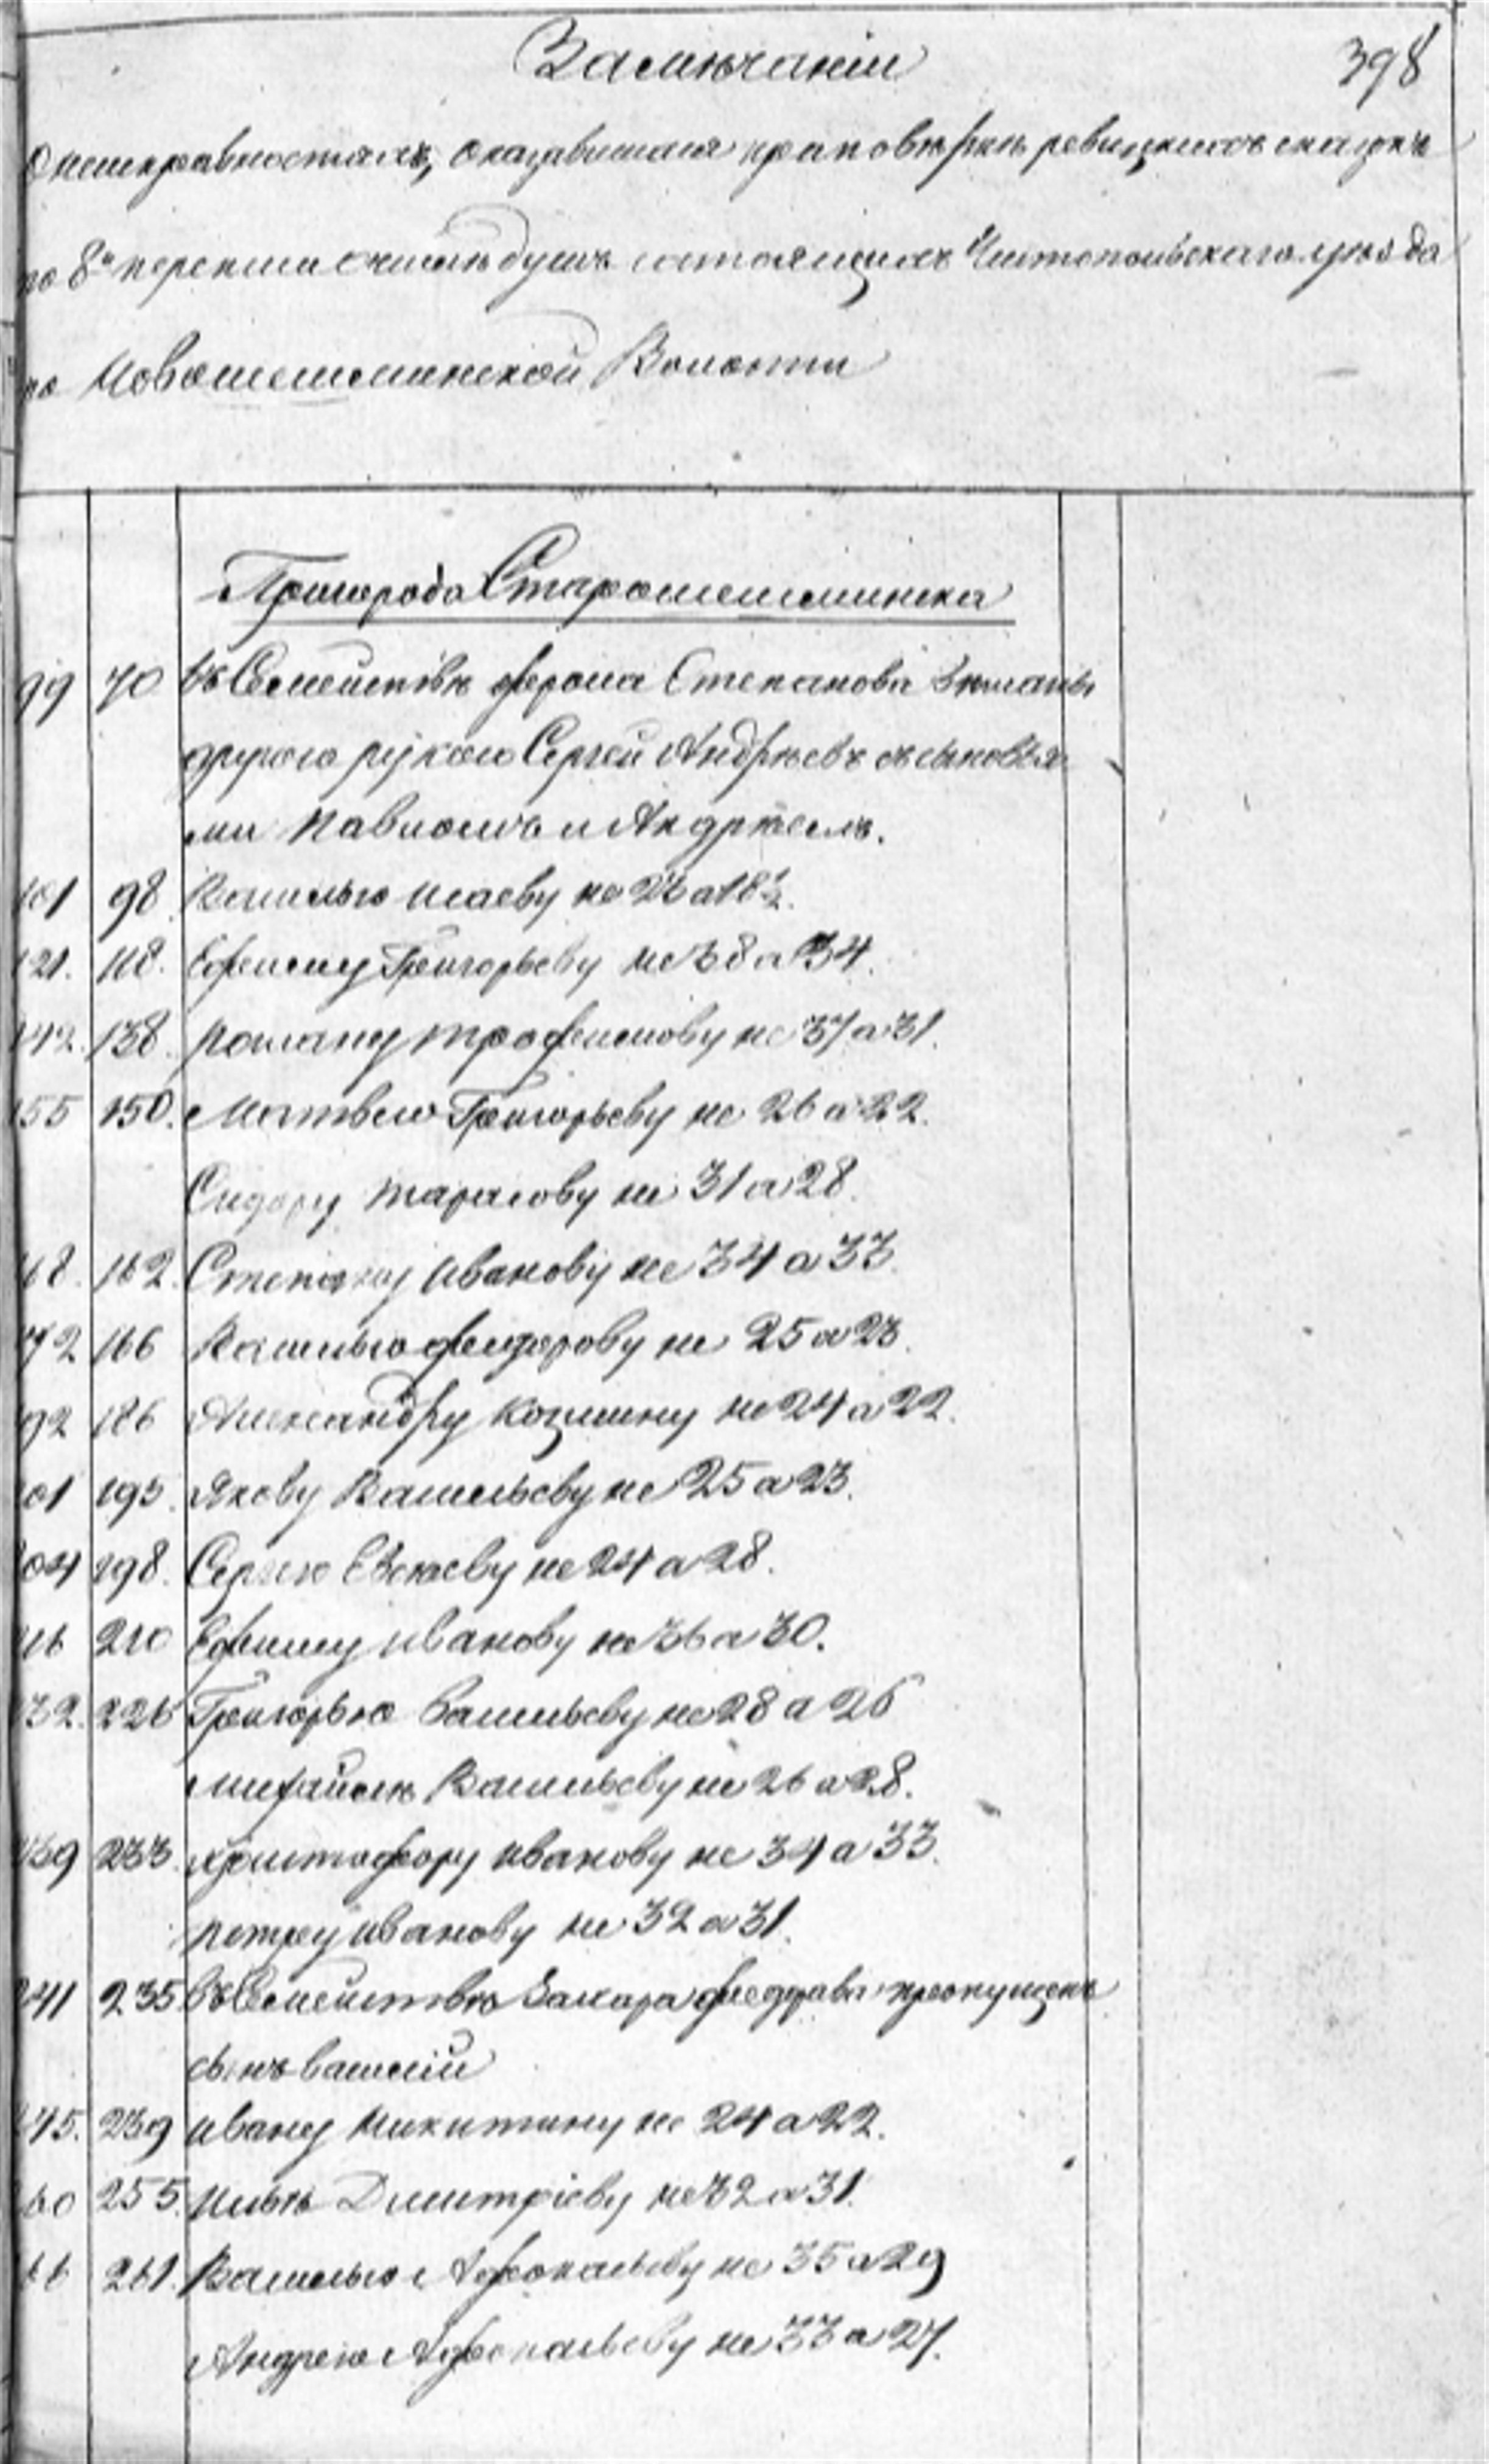 Замѣчаніи 398
О неисправностяхъ, оказавшихся при повѣркѣ ревизскихъ сказокъ
по 8й переписи о числѣ душъ состоящихъ Чистопольскаго уѣзда
по Новошешминской Волости
Пригорода Старошешминска
99 70 въ Семействѣ Степанова
другою рукою Сергей Андрѣевъ съ сыновья
ми Павломъ и Андрѣемъ.
101 98 Василью Исаеву не 23 а 18½.
121. 118. Ефиму Григорьеву не 38 а 34.
142. 138. Роману Трофимову не 37 а 31.
155 150. Матвею Григорьеву не 26 а 22.
Сидору Тарасову не 31 а 28.
68. 162. Степану Иванову не 34 а 33.
72 166 Василью Федорову не 25 а 23.
92 186 Александру Козмину не 24 а 22.
01 195. Якову Васильеву не 25 а 23.
04 198. Сергею не 24 а 28.
16 210 Ефиму Иванову не 36 а 30.
32. 226 Григорью Васильеву не 28 а 26
Михайлѣ Васильеву не 26 а 28.
39 233. Христофору Иванову не 34 а 33.
Петру Иванову не 32 а 31.
241 235 Въ Семействѣ Захара Федорова пропущенъ
сынъ Василій
245. 239 Ивану Никитину не 24 а 22.
60 255. Ильѣ Дмитріеву не 32 а 31.
66 261. Василью Афонасьеву не 35 а 29
Андрею Афонасьеву не 33 а 27.